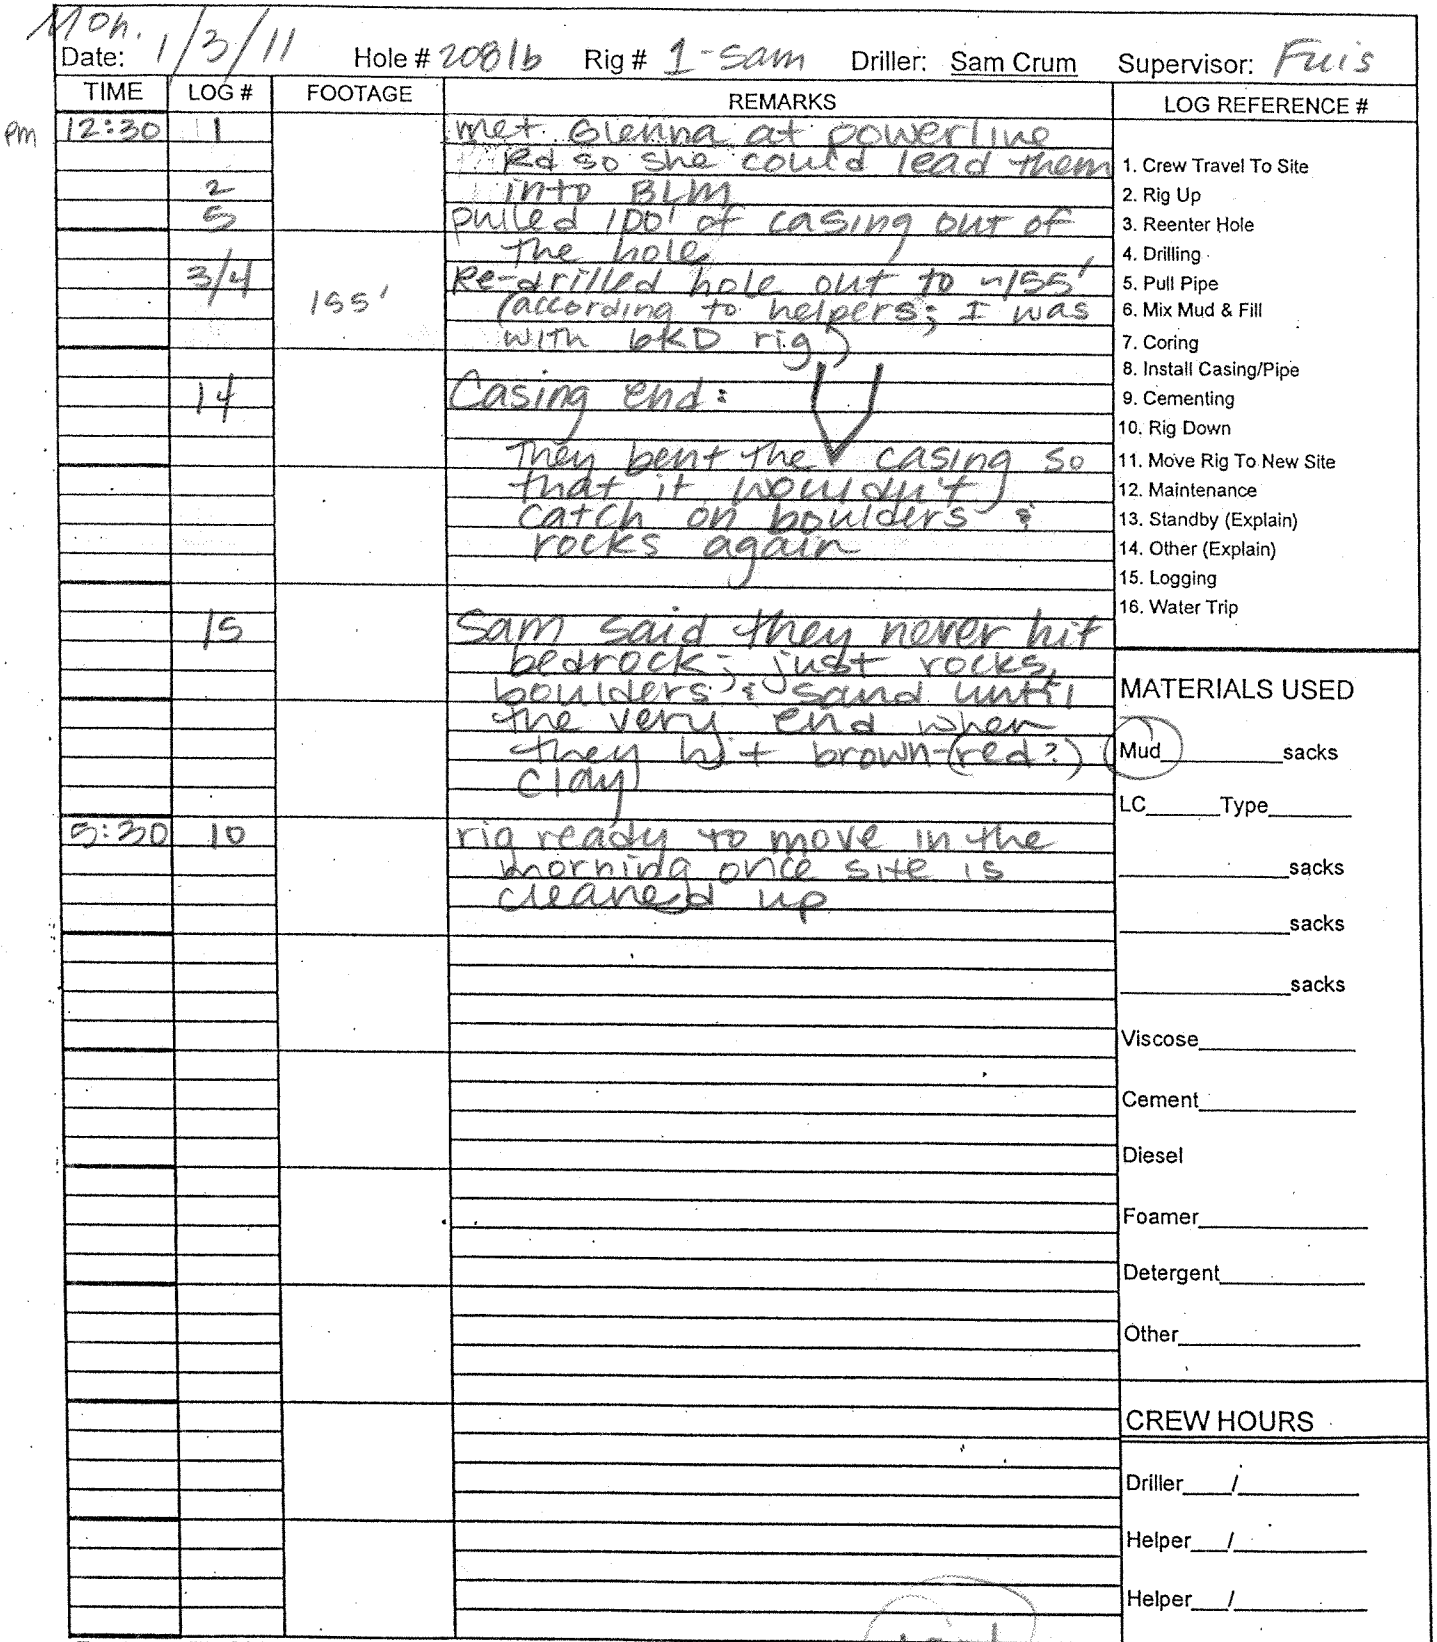 Mon.
Date: 1/3/11 Hole # 2081b Rig # 1-Sam Driller: Sam Crum Supervisor: Fuis
TIME LOG # FOOTAGE REMARKS LOG REFERENCE #
pm 12:30 1 met Glenna at powerline
Rd so she could lead them
2 into BLM
5 pulled 100' of casing out of
the hole
3/4 Re-drilled hole out to ~155'
155' (according to helpers; I was
with 6KD rig)
14 Casing end:
They bent the casing so
that it wouldn't
catch on boulders &
rocks again
15 Sam said they never hit
bedrock; just rocks,
boulders & sand until
the very end when
they hit brown-(red?)
clay
5:30 10 rig ready to move in the
morning once site is
cleaned up
1. Crew Travel To Site
2. Rig Up
3. Reenter Hole
4. Drilling
5. Pull Pipe
6. Mix Mud & Fill
7. Coring
8. Install Casing/Pipe
9. Cementing
10. Rig Down
11. Move Rig To New Site
12. Maintenance
13. Standby (Explain)
14. Other (Explain)
15. Logging
16. Water Trip
MATERIALS USED
Mud__________sacks
LC_____Type______
____________sacks
____________sacks
____________sacks
Viscose___________
Cement___________
Diesel
Foamer____________
Detergent__________
Other_____________
CREW HOURS
Driller___/_________
Helper___/_________
Helper___/_________